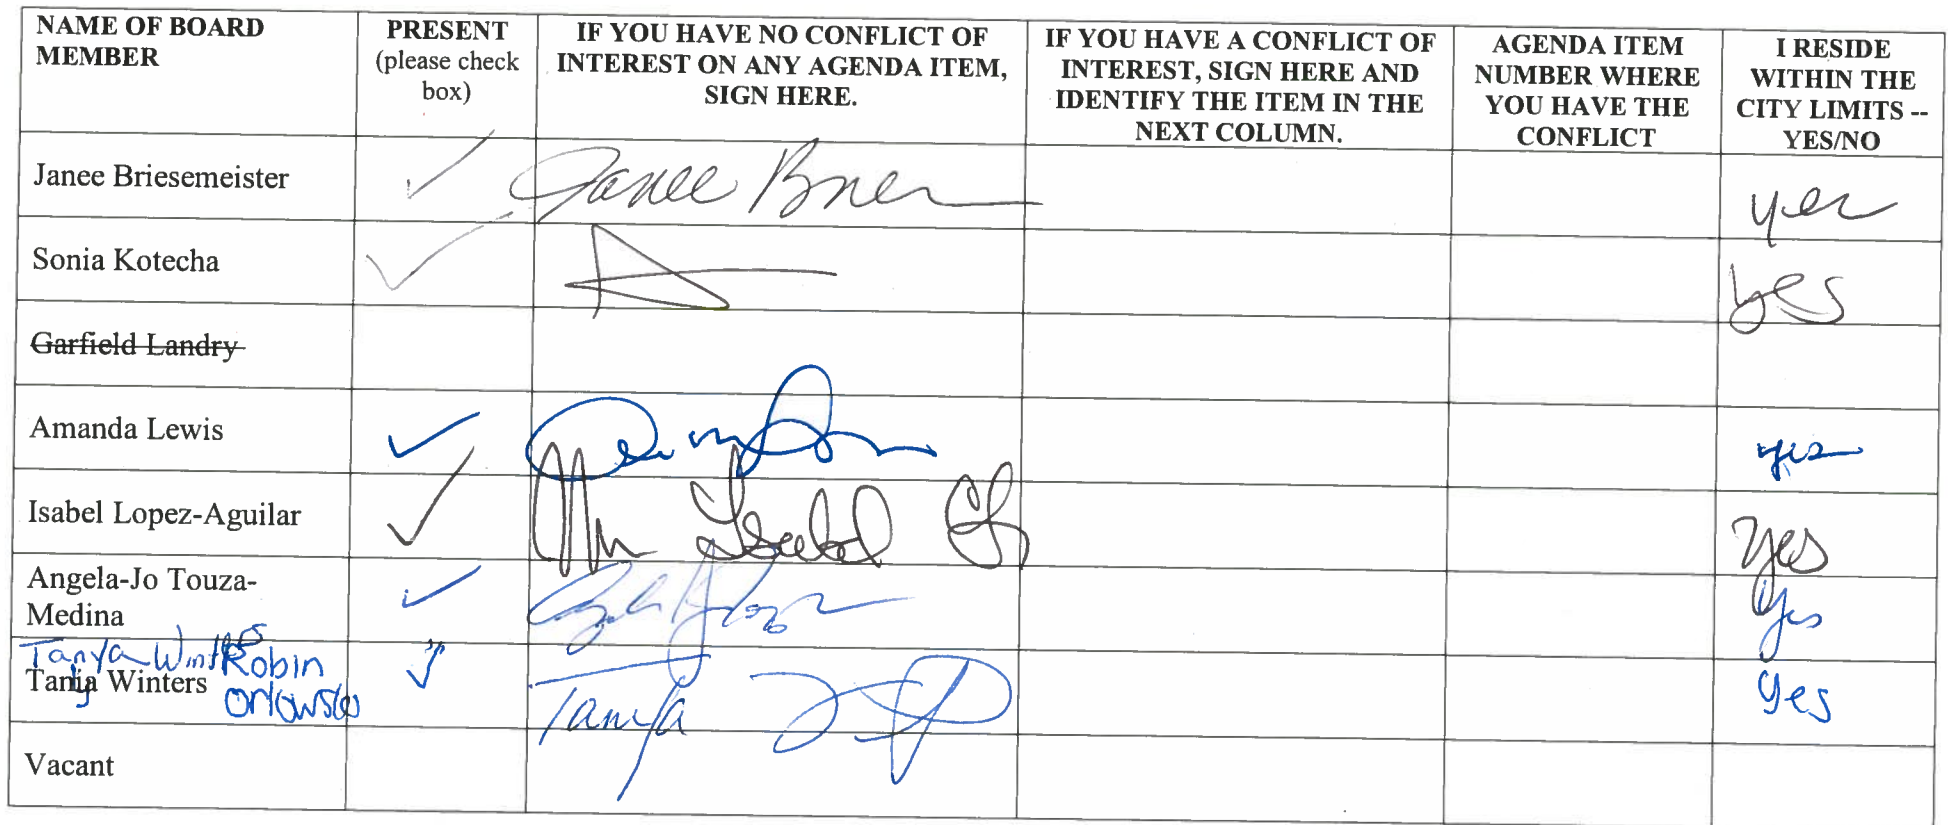 NAME OF BOARD MEMBER
PRESENT (please check box)
IF YOU HAVE NO CONFLICT OF INTEREST ON ANY AGENDA ITEM, SIGN HERE.
IF YOU HAVE A CONFLICT OF INTEREST, SIGN HERE AND IDENTIFY THE ITEM IN THE NEXT COLUMN.
AGENDA ITEM NUMBER WHERE YOU HAVE THE CONFLICT
I RESIDE WITHIN THE CITY LIMITS -- YES/NO
Janee Briesemeister Janee yes
Sonia Kotecha yes
Garfield Landry
Amanda Lewis yes
Isabel Lopez-Aguilar Isabel yes
Angela-Jo Touza-
Medina yes
Tanya Winters Robin
Tania Winters Orlowski Tanya yes
Vacant